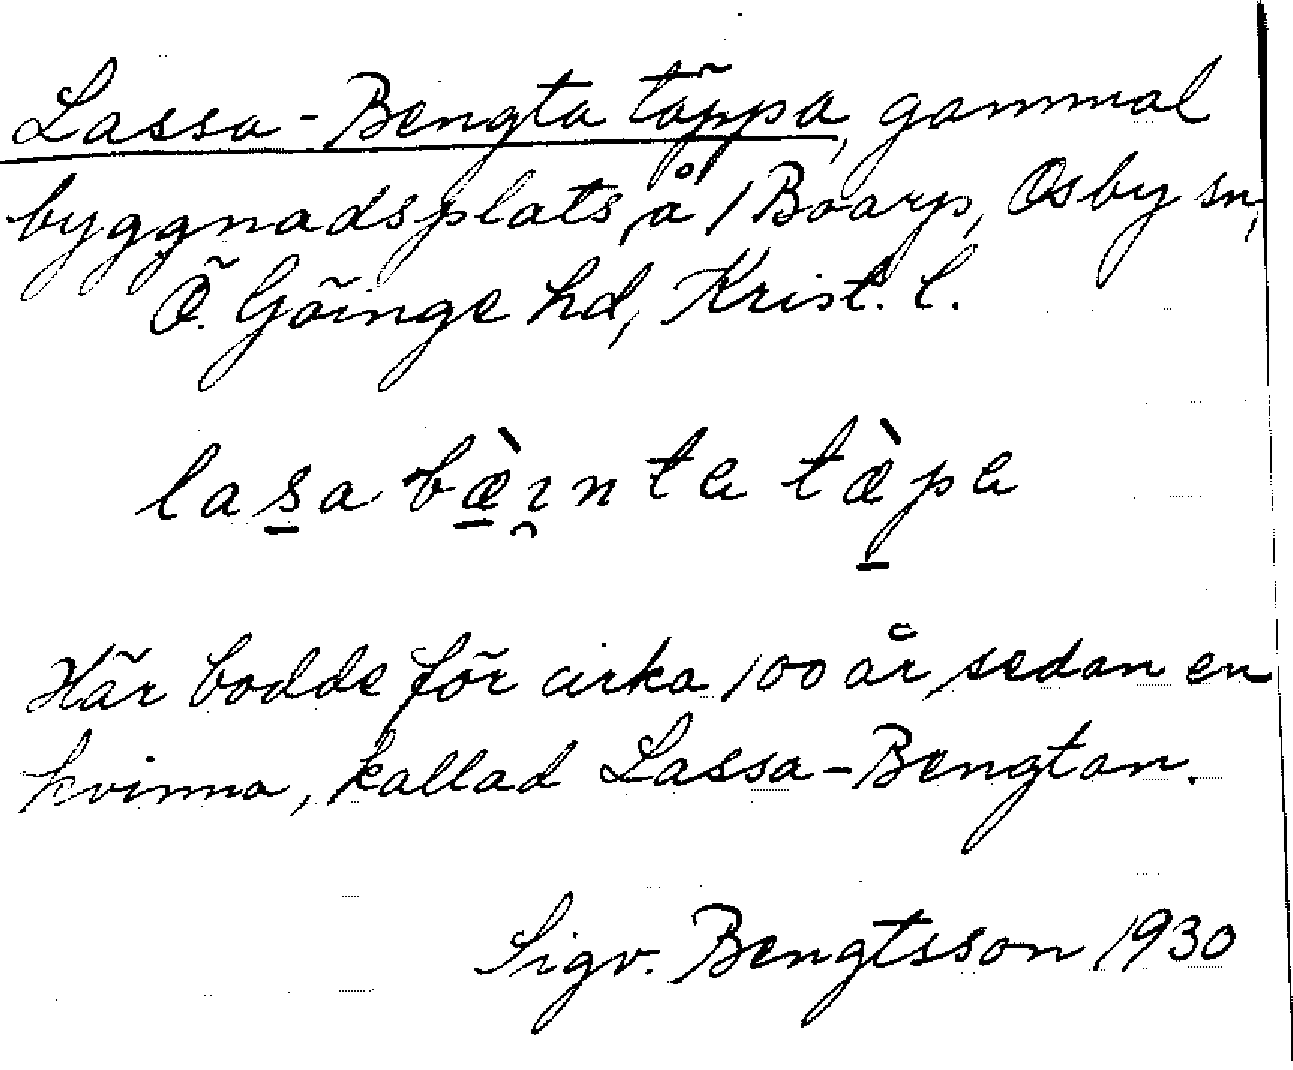 Lassa-Bengta täppa, gammal
byggnadsplats å 1 Boarp, Osby sn,
Ö. Göinge hd, Krist. l.
lasa bæ̀ınta tæ̀pa
Här bodde för cirka 100 år sedan en
kvinna, kallad Lassa-Bengtan.
Sigv. Bengtsson 1930